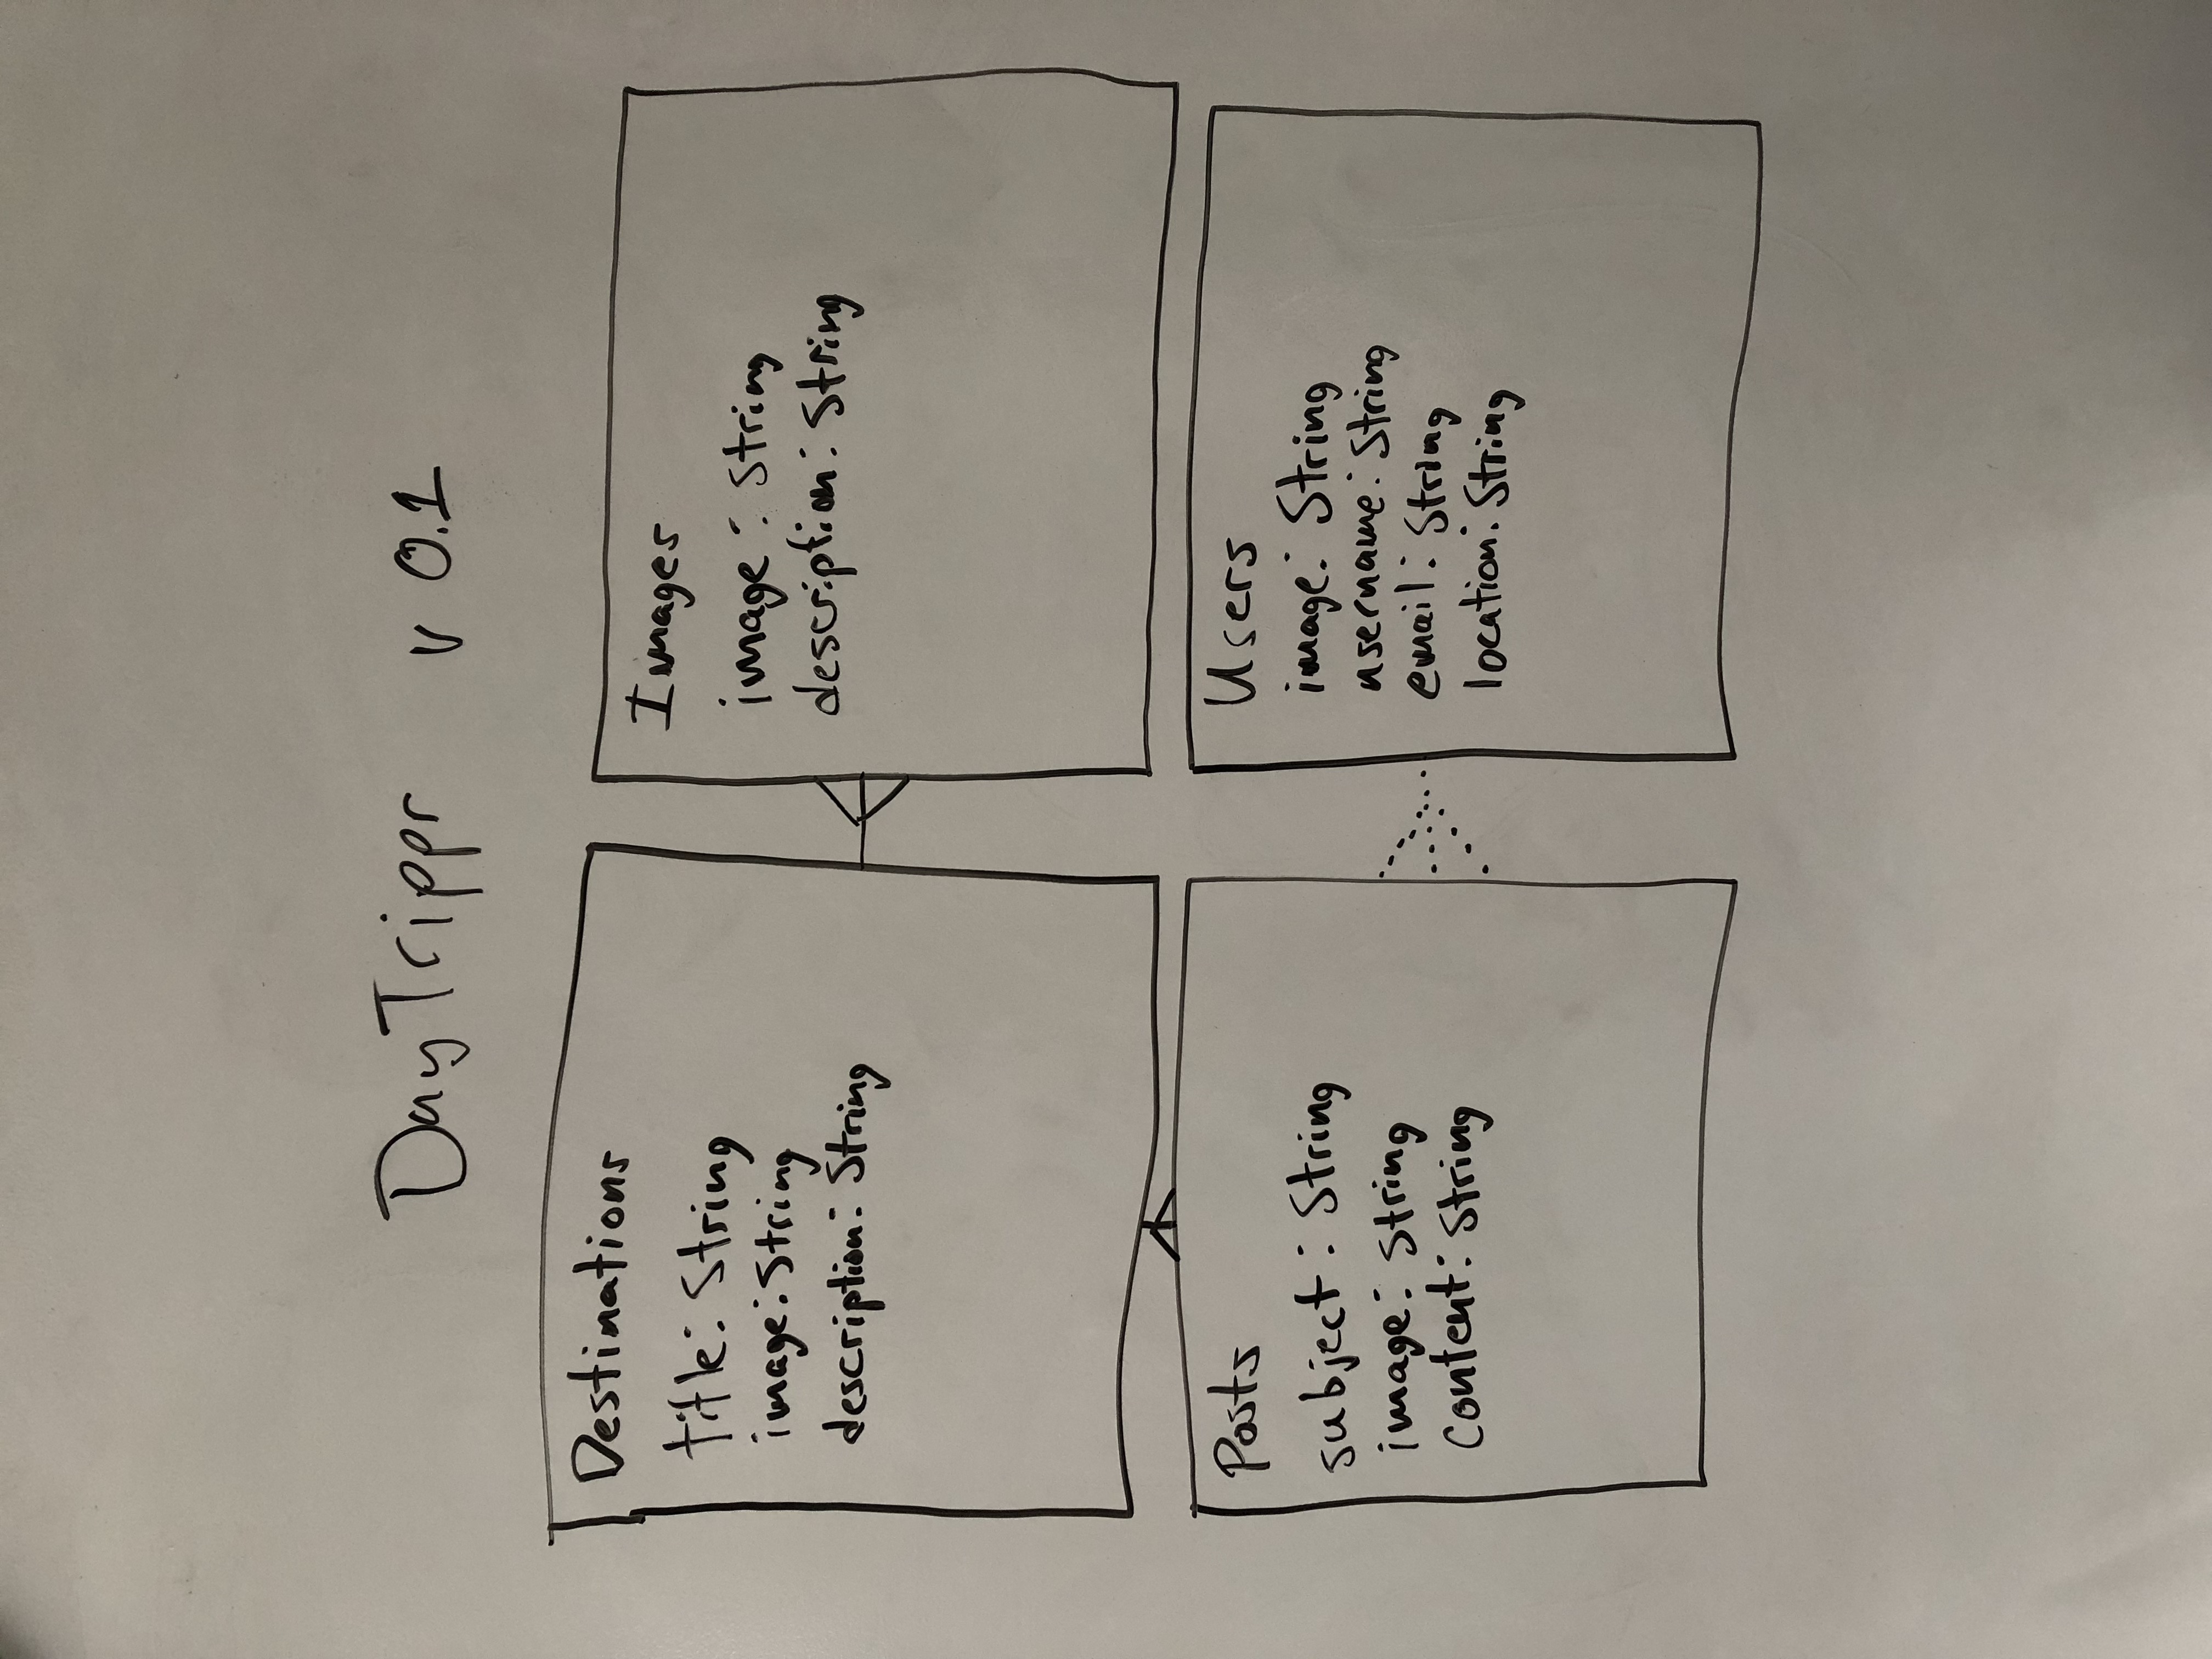 DayTrippr v 0.1
Destinations
title: String
image: String
description: String
Images
image: String
description: String
Posts
subject: String
image: String
content: String
Users
image: String
username: String
email: String
location: String